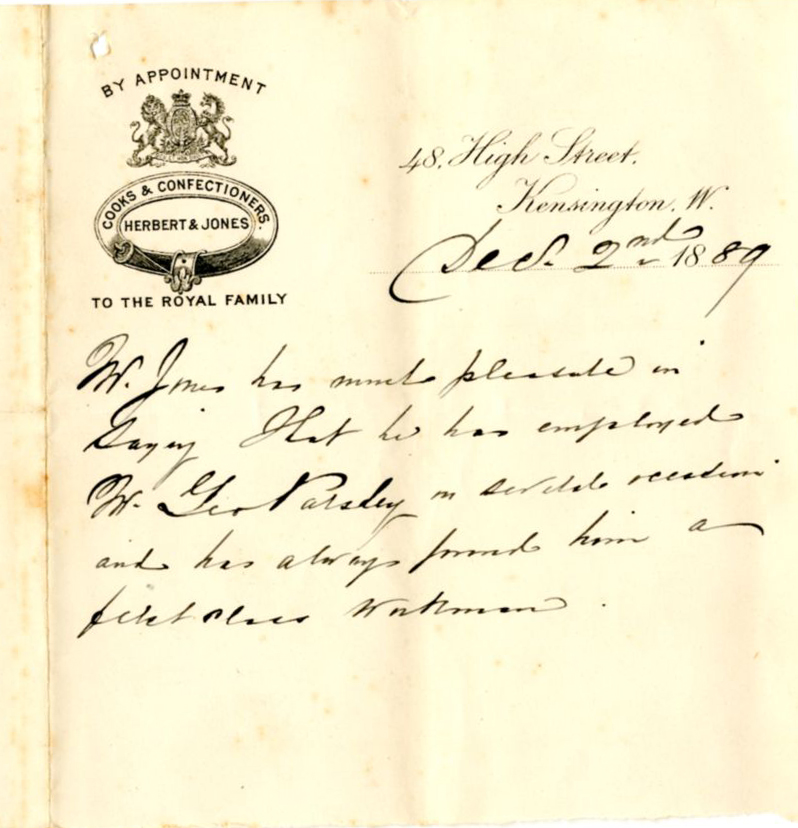 BY APPOINTMENT
COOKS & CONFECTIONERS.
HERBERT & JONES
TO THE ROYAL FAMILY
48. High Street.
Kensington. W.
Dec. 2nd 1889
W. Jones has much pleasure in
saying that he has employed
W. Geo Parsley on several occasions
and has always found him a
first class workman.